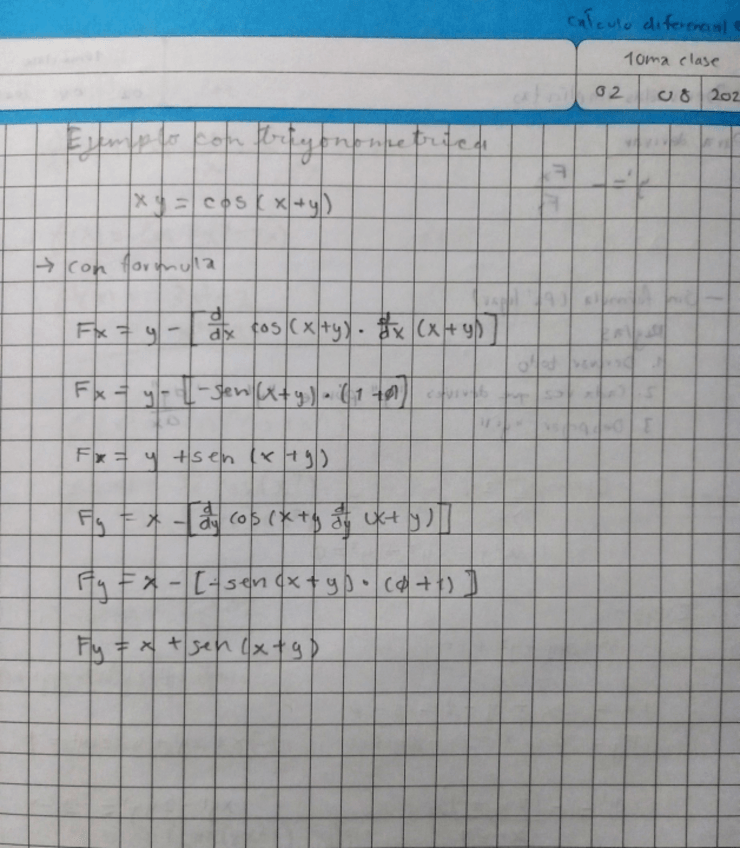 calculo diferencial
10ma clase
02 08 202
Ejemplo con trigonometrica
xy = cos(x+y)
→ con formula
Fx = y - [d/dx cos(x+y) · d/dx (x+y)]
Fx = y - [-sen(x+y) · (1+0)]
Fx = y + sen (x+y)
Fy = x - [d/dy cos(x+y d/dy (x+y)]
Fy = x - [-sen(x+y) · (0+1)]
Fy = x + sen (x+y)